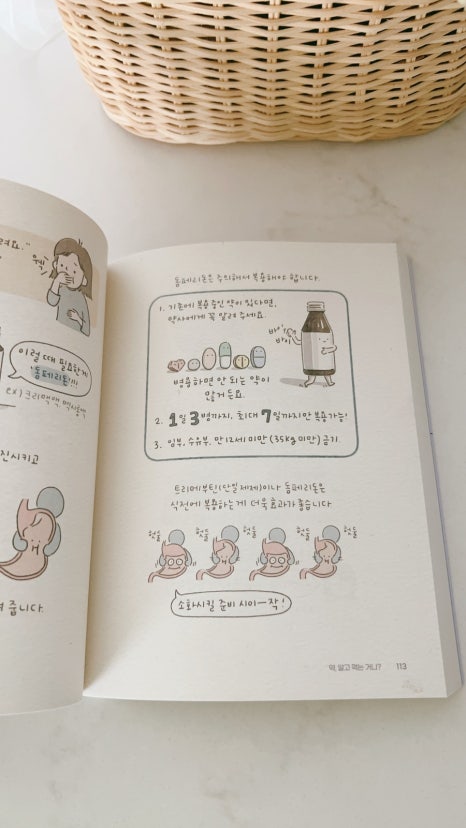 려요."
웩
이럴 때 필요한게
'돔페리돈'!!
ex) 크리맥액, 멕시롱액
진시키고
줍니다.
돔페리돈은 주의해서 복용해야 합니다.
1. 기존에 복용중인 약이 있다면,
약사에게 꼭 알려 주세요.
바이
바이
병용하면 안 되는 약이
많거든요.
2. 1일 3병까지, 최대 7일까지만 복용가능!
3. 임부, 수유부, 만 12세 미만 (35kg 미만) 금기.
트리메부틴(단일제제)이나 돔페리돈은
식전에 복용하는게 더욱 효과가 좋습니다
헛둘 헛둘 헛둘 헛둘 헛둘
소화시킬 준비 시이-작!
약, 알고 먹는 거니? 113